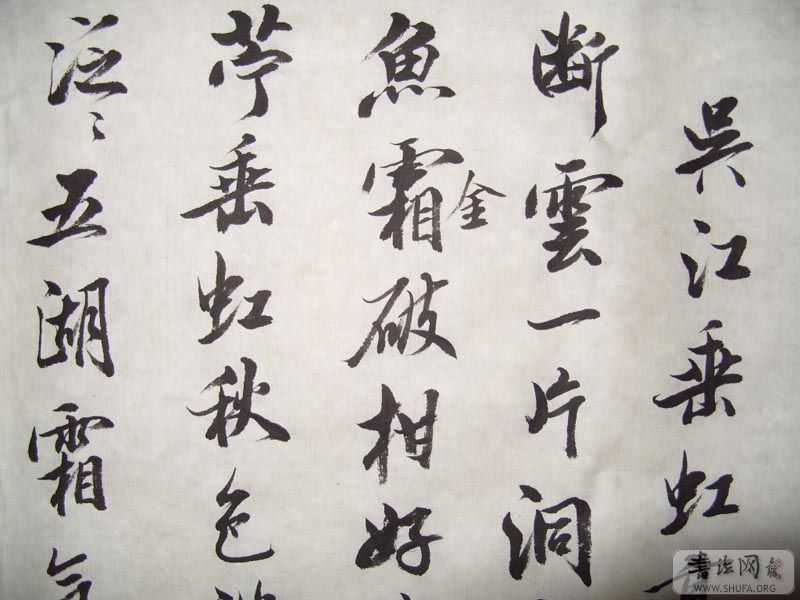 吳江垂虹
断雲一片洞
魚霜金破柑好
苧垂虹秋色
泛〻五湖霜
書法网
WWW.SHUFA.ORG